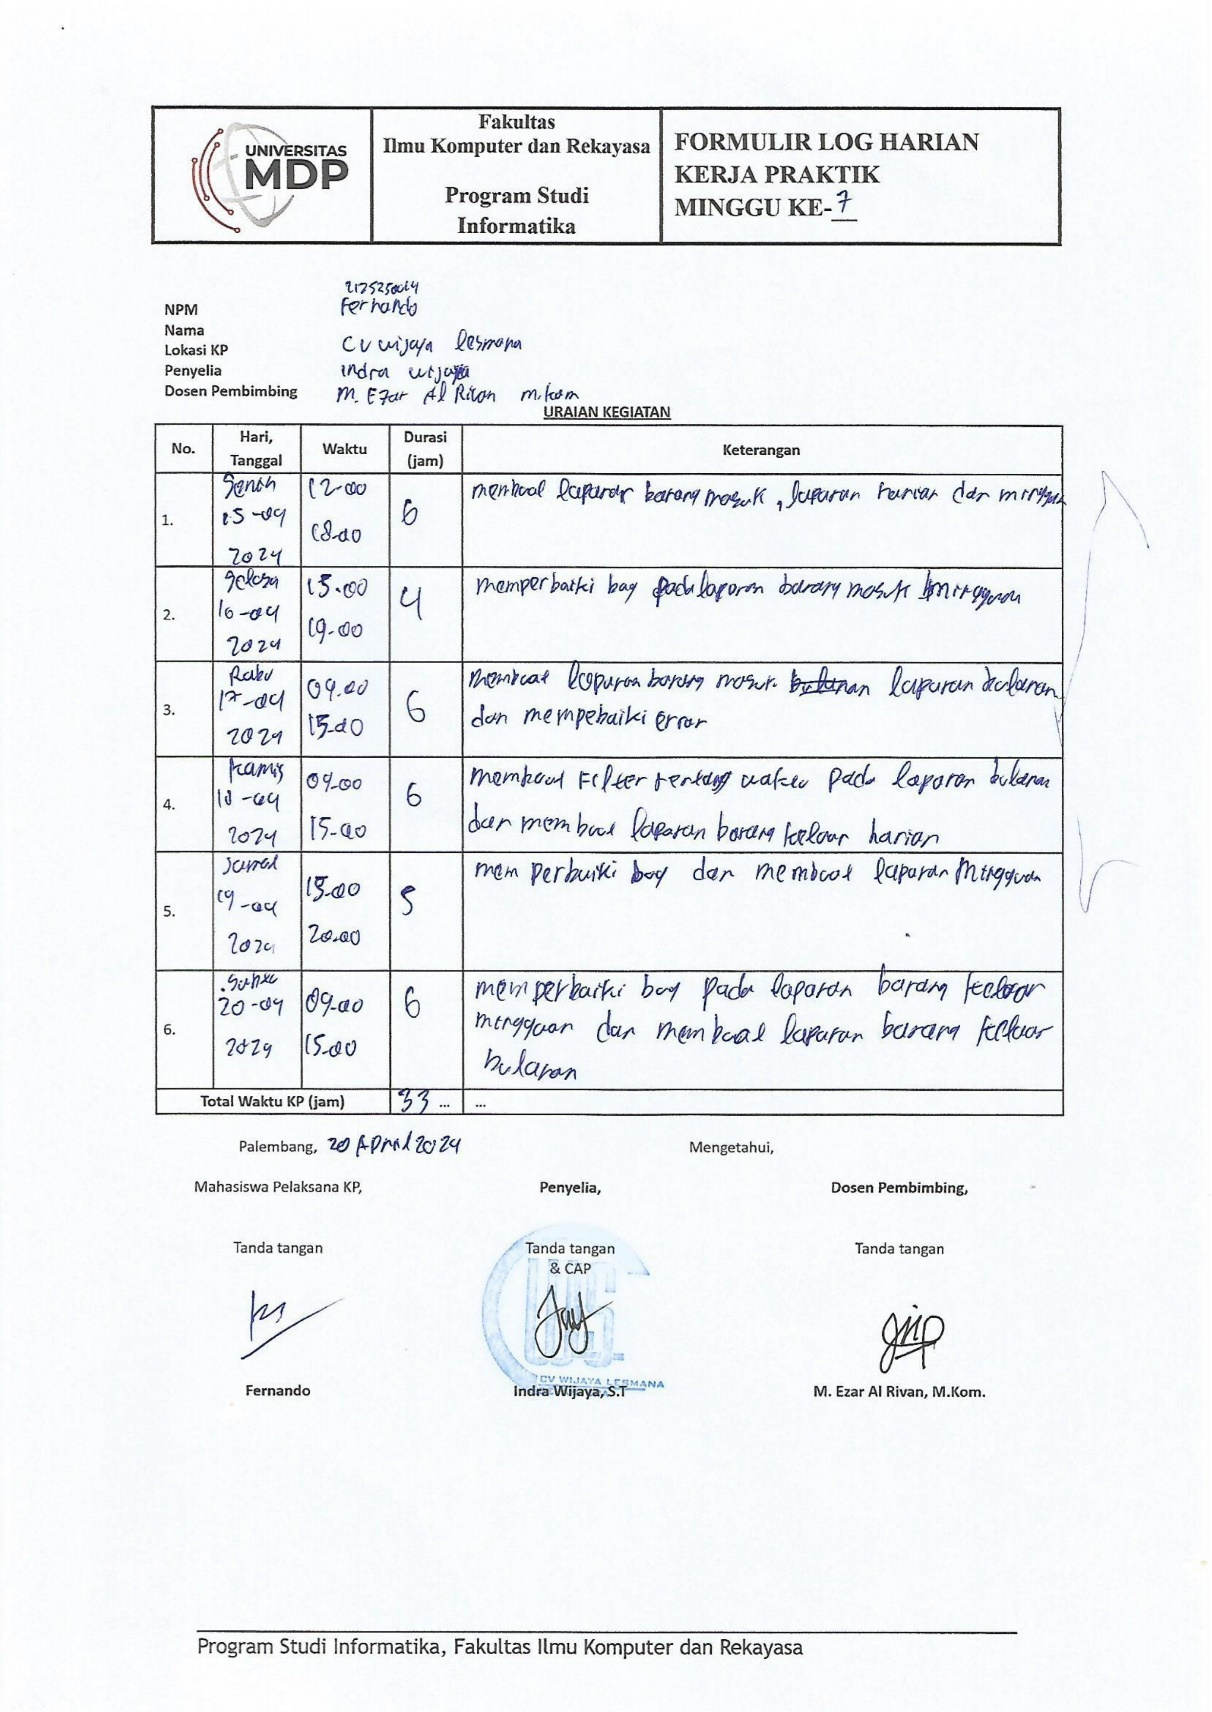 UNIVERSITAS
MDP
Fakultas
Ilmu Komputer dan Rekayasa
Program Studi
Informatika
FORMULIR LOG HARIAN
KERJA PRAKTIK
MINGGU KE-7
NPM
Nama Fernando
Lokasi KP CV wijaya lesmana
Penyelia indra wijaya
Dosen Pembimbing M. Ezar Al Rivan m.kom
URAIAN KEGIATAN
No. Hari, Tanggal Waktu Durasi (jam) Keterangan
1. Senin 15-04 2024 12-00 18-00 6 membuat laporan barang masuk, laporan harian dan
2. Selasa 16-04 2024 15.00 19-00 4 memperbaiki bag pada laporan barang masuk mingguan
3. Rabu 17-04 2024 09.00 15-00 6 membuat laporan barang masuk laporan bulanan
dan mempebaiki error
4. Kamis 18-04 2024 09-00 15-00 6 membuat Filter tentang waktu pada laporan bulanan
dan membuat laporan barang keluar harian
5. 19-04 2024 15-00 20.00 5 memperbaiki bag dan membuat laporan Mingguan
6. 20-04 2024 09-00 15-00 6 memperbaiki bag pada laporan barang keluar
mingguan dan membuat laporan barang keluar
bulanan
Total Waktu KP (jam) 33 ... ...
Palembang, 20 April 2024 Mengetahui,
Mahasiswa Pelaksana KP, Penyelia, Dosen Pembimbing,
Tanda tangan Tanda tangan Tanda tangan
& CAP
CV WIJAYA LESMANA
Fernando Indra Wijaya, S.T M. Ezar Al Rivan, M.Kom.
Program Studi Informatika, Fakultas Ilmu Komputer dan Rekayasa